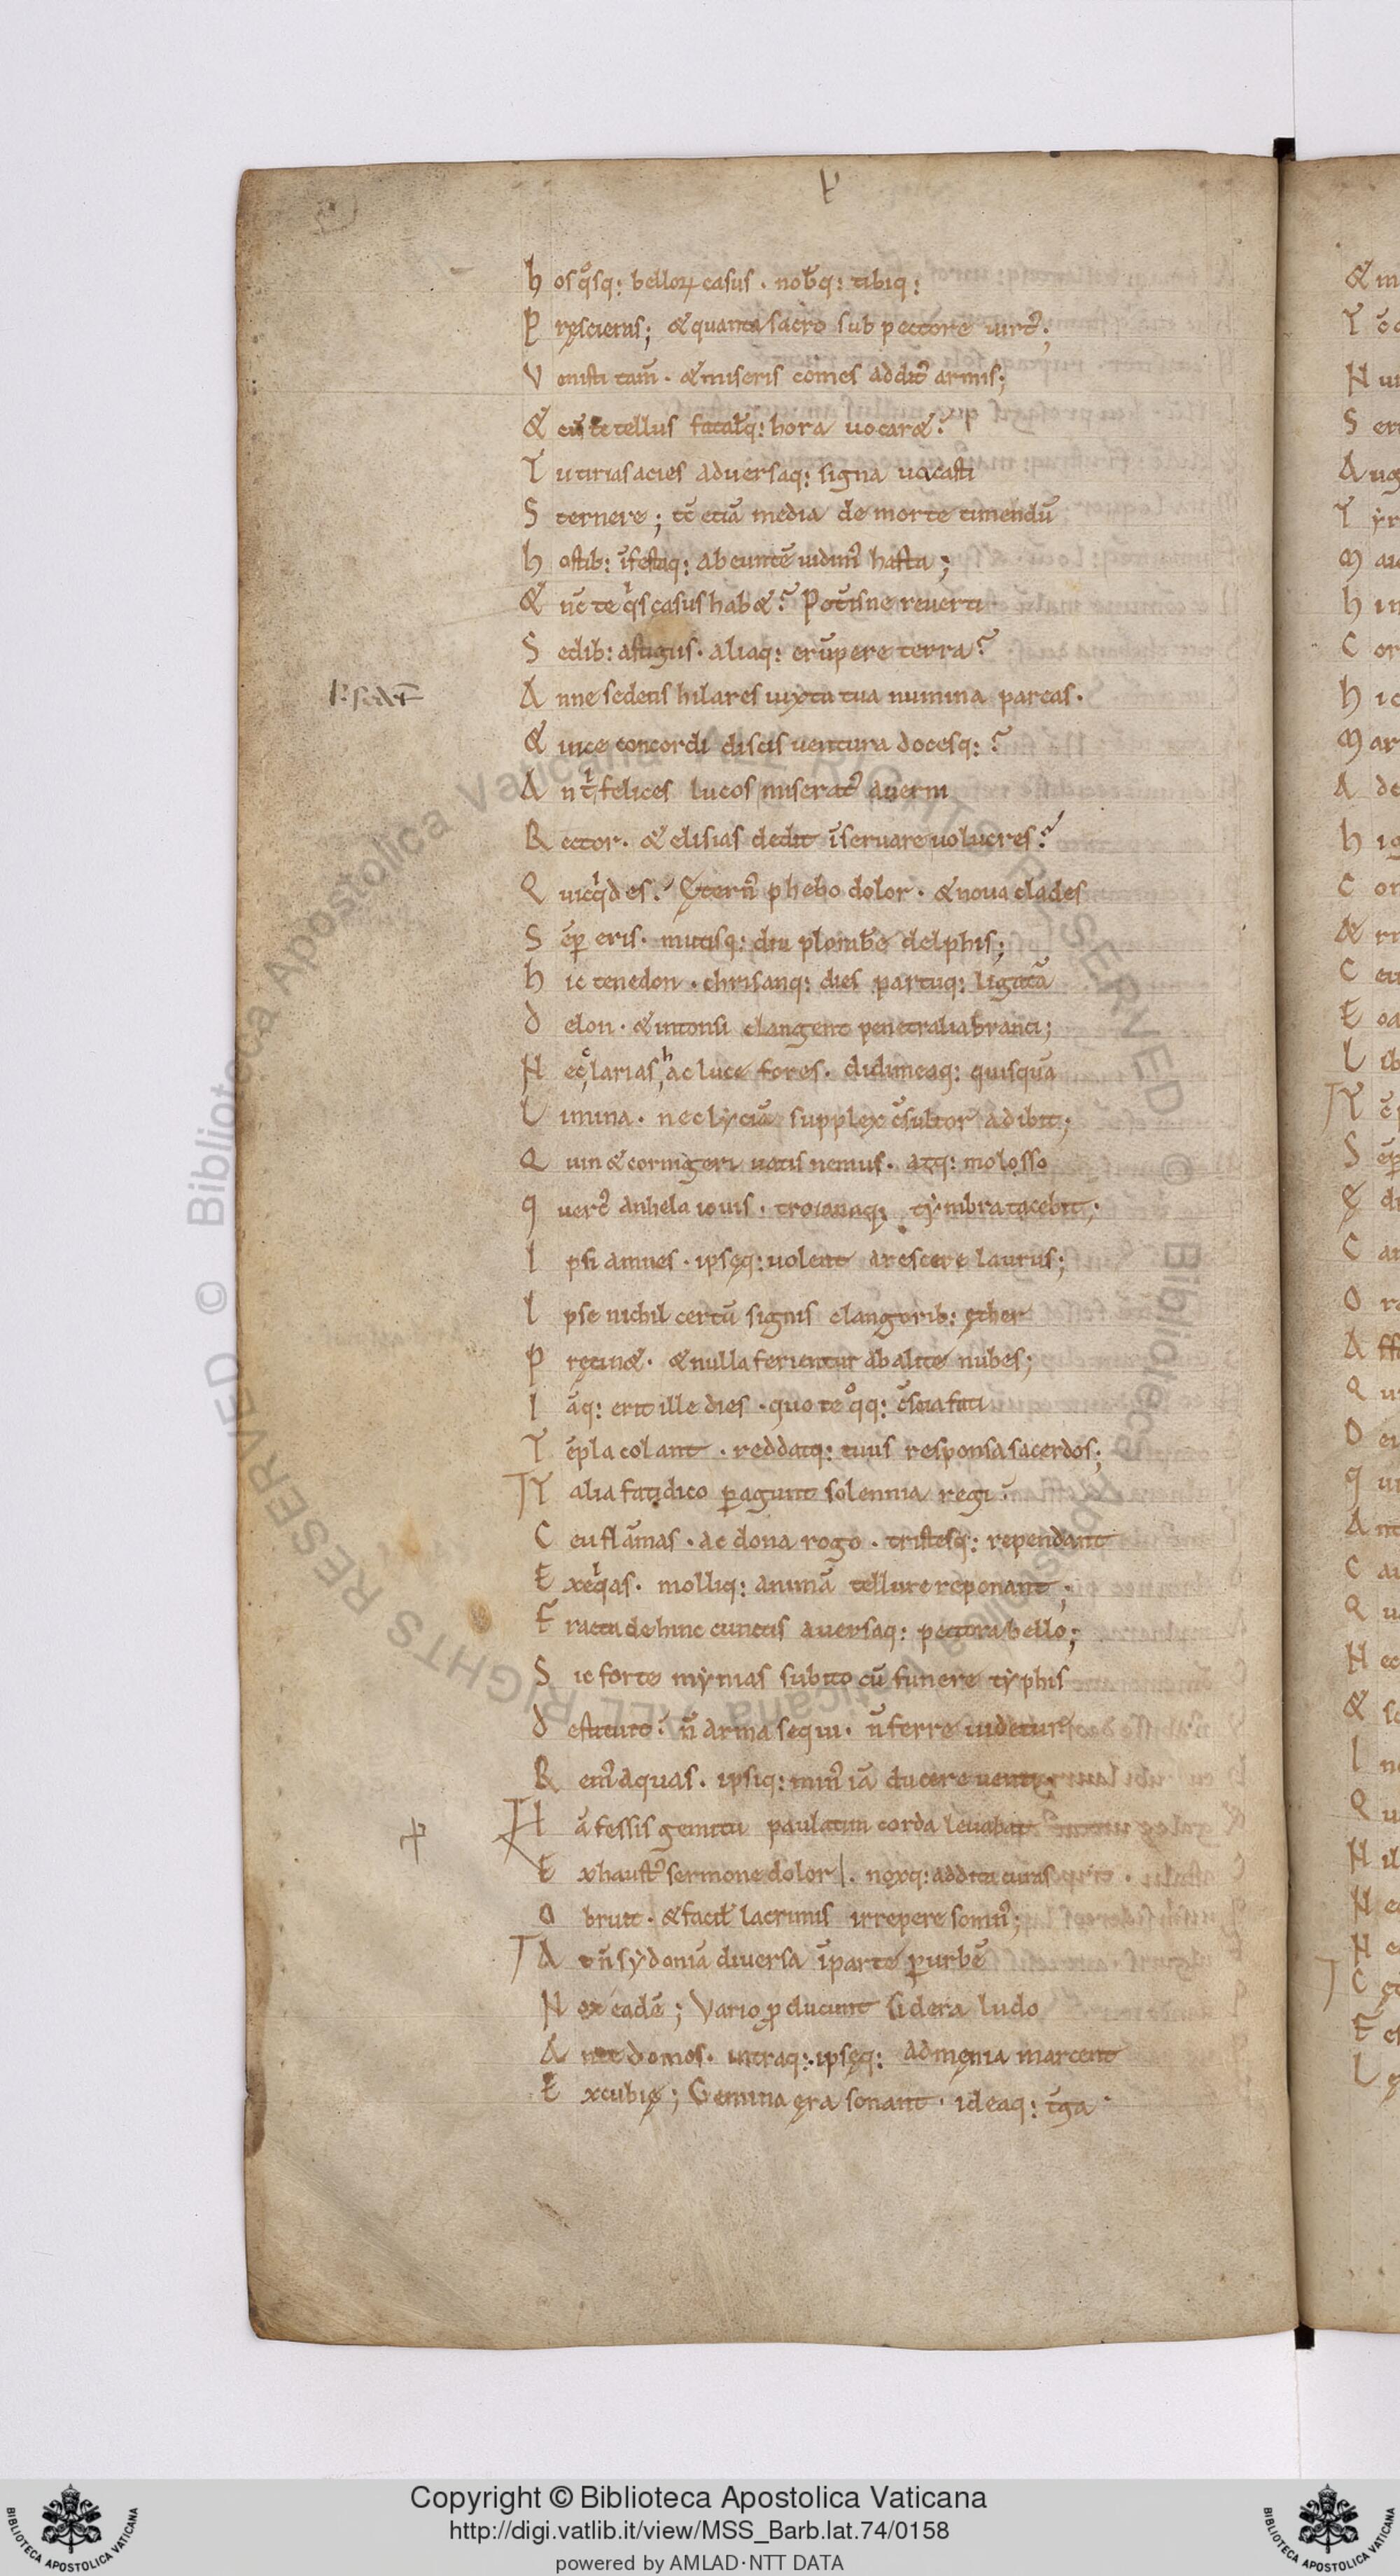 h osq̊sq: belloꝝ casus · nob̄q: tibiq:
P ręscieras; & quanta sacro sub pectore uirt᷒;
V enisti tam̄ · & miseris comes addit᷒ armis;
& cū te tellus fatal̄q: hora uocar&?
T u tirias acies aduersaq: signa uacasti
S ternere; tc̄ etiā media de morte timendū
h ostib: īfestaq: abeuntē uidim᷒ hasta;
& nc̄ te qͥs casus hab&? Potisne reuerti
S edib: a stigiis · aliaq: erūpere terra?
A nne sedens hilares iuxta tua numina parcas ·
& uice concordi discis uentura docesq:?
A n t̄ felices lucos miserat᷒ auerni
R ector · & elisias dedit īseruare uolucres?
Q uicqͥd es? Ętern᷒ phebo dolor · & noua clades
S ēp eris · mutisq: diu plorab̄e delphis;
h ic tenedon · chrisanq: dies partuq: ligatā
d elon · & intonsi clangent penetralia branci;
N ec clarias hac luce fores · didimeaq: quisquā
L imina · nec lyciā supplex c̄sultor adibit;
Q uin & cornigeri uatis nemus · atq: molosso
q uerc᷒ anhela iouis · troianaq: tymbra tacebit;
I psi amnes · ipsęq: uolent arescere laurus;
I pse nichil certū signis clangorib: ęther
P ręcin& · & nulla ferientur ab alite nubes;
I āq: erit ille dies · quo te qͦq: c̄scia fati
T ēpla colant · reddatq: tuus responsa sacerdos;
T alia fatidico peragunt solennia regi ·
C eu flāmas · ac dona rogo · tristesq: rependant
E xeqͥas · molliq: animā tellure reponant;
F racta dehinc cunctis auersaq: pectora bello;
S ic fortes mynias subito cū funere typhis
d estituit? n̄ arma sequi · n̄ ferre uidetur
R em᷒ aquas · ipsiq: min᷒ iā ducere uenti ·
H ā fessis gemitu paulatim corda leuabat
E xhaust᷒ sermone dolor · noxq: addita curas
O bruit · & facil̄ lacrimis irrepere somn᷒;
A t n̄ sydoniā diuersa īparte per urbē
N ox eadē; Vario ꝓducunt sidera ludo
A nte domos · intraq: · ipsęq: ad męnia marcent
E xcubię; Gemina ęra sonant · ideaq: t̄ga
Copyright © Biblioteca Apostolica Vaticana
http://digi.vatlib.it/view/MSS_Barb.lat.74/0158
powered by AMLAD·NTT DATA